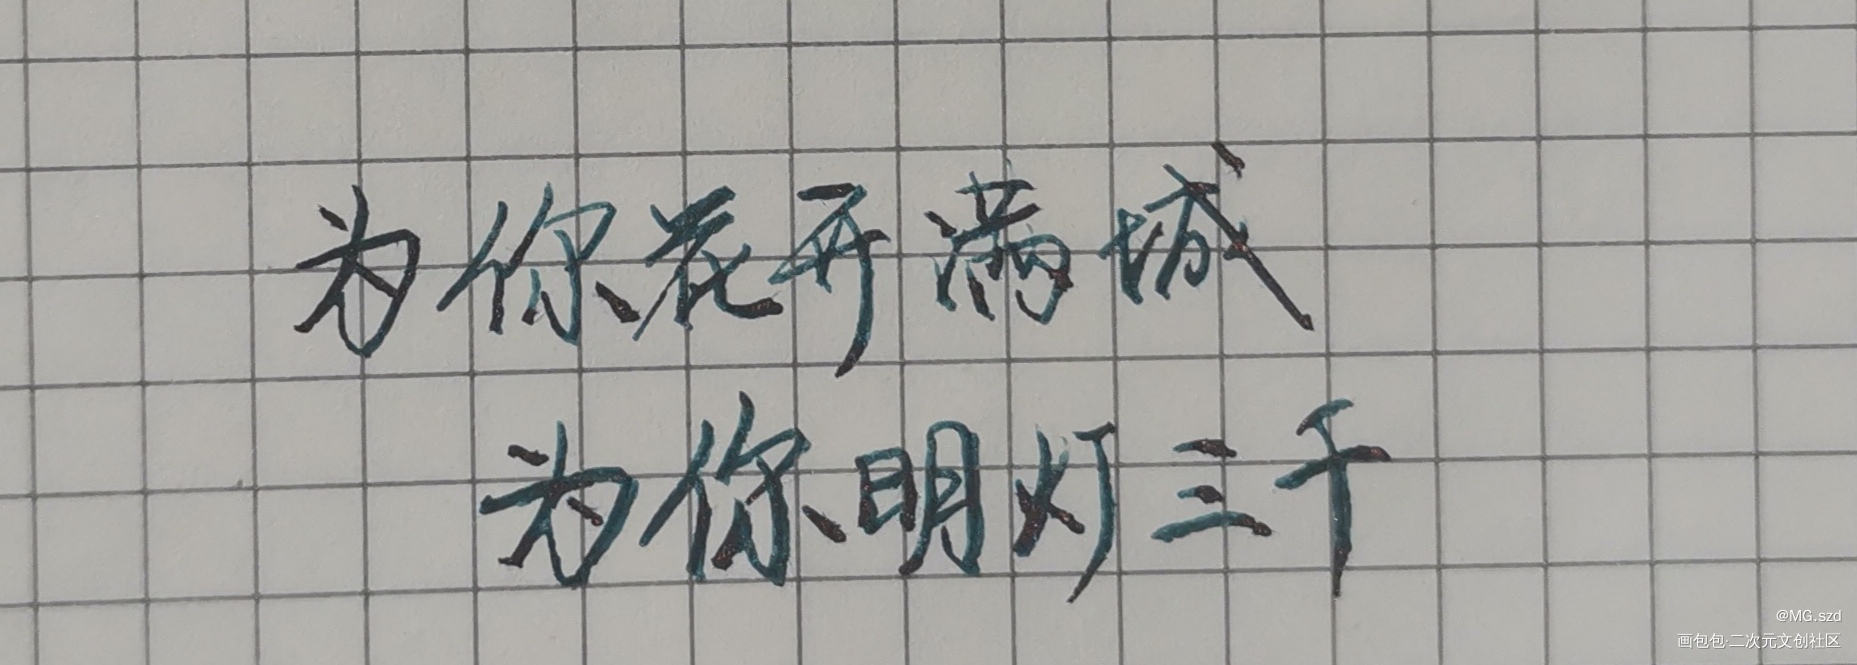 为你花开满城
为你明灯三千
@MG.szd
画包包·二次元文创社区